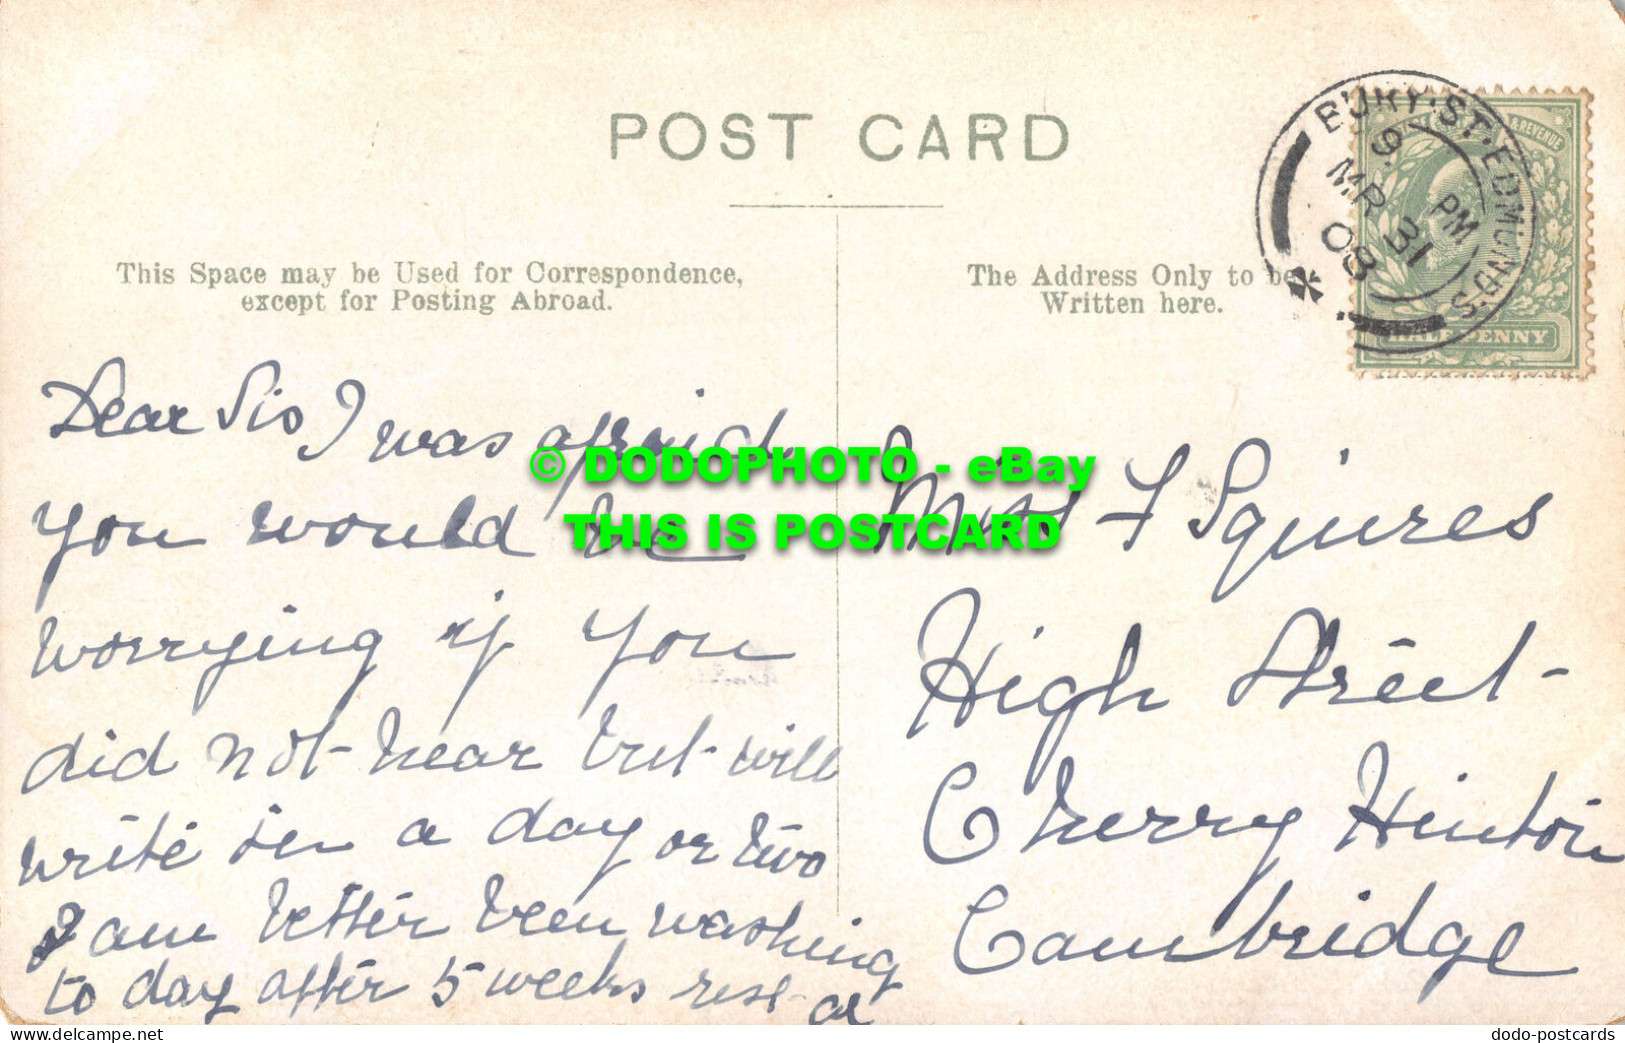 POST CARD
This Space may be Used for Correspondence,
except for Posting Abroad.
The Address Only to be
Written here.
BURY·ST.EDMUND'S
9 PM
MR 31
08
& REVENUE
HALF PENNY
Dear Sis I was afraid
you would be
worrying if you
did not hear but will
write in a day or two
I am better been washing
to day after 5 weeks rest
Miss F Squires
High Street
Cherry Hinton
Cambridge
© DODOPHOTO - eBay
THIS IS POSTCARD
www.delcampe.net
dodo-postcards